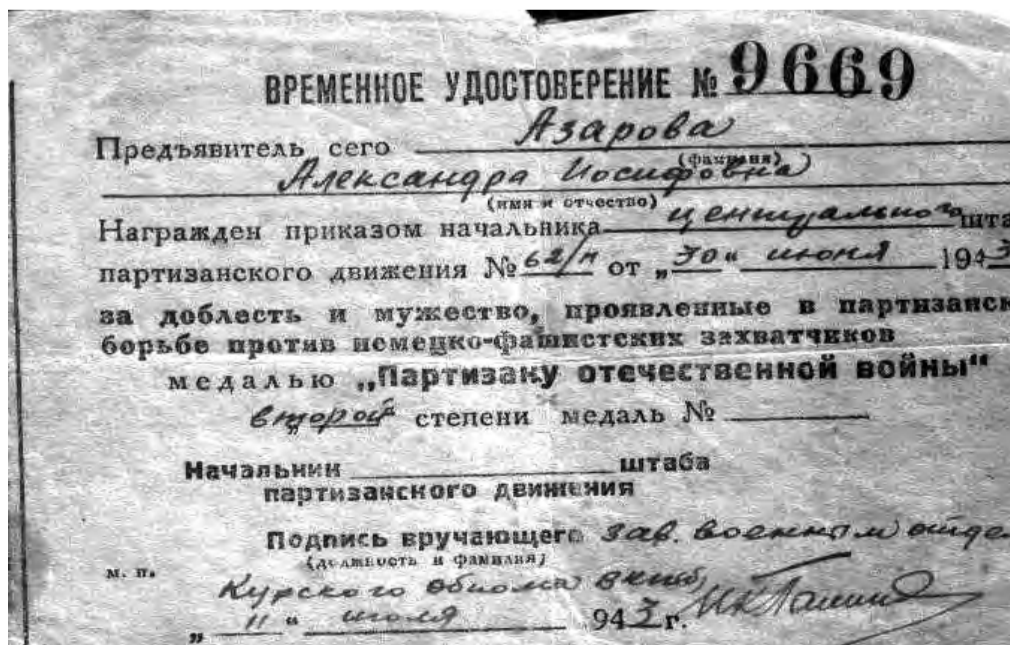 ВРЕМЕННОЕ УДОСТОВЕРЕНИЕ № 9669
Предъявитель сего Азарова
(фамилия)
Александра Иосифовна
(имя и отчество)
Награжден приказом начальника центрального шта
партизанского движения № 62/н от „30“ июня 1943
за доблесть и мужество, проявленные в партизанск
борьбе против немецко-фашистских захватчиков
медалью „Партизану отечественной войны“
второй степени медаль №
Начальник штаба
партизанского движения
Подпись вручающего зав. военным отдел
(должность и фамилия)
м. п.
Курского обкома ВКП(б)
„11“ июля 943 г.